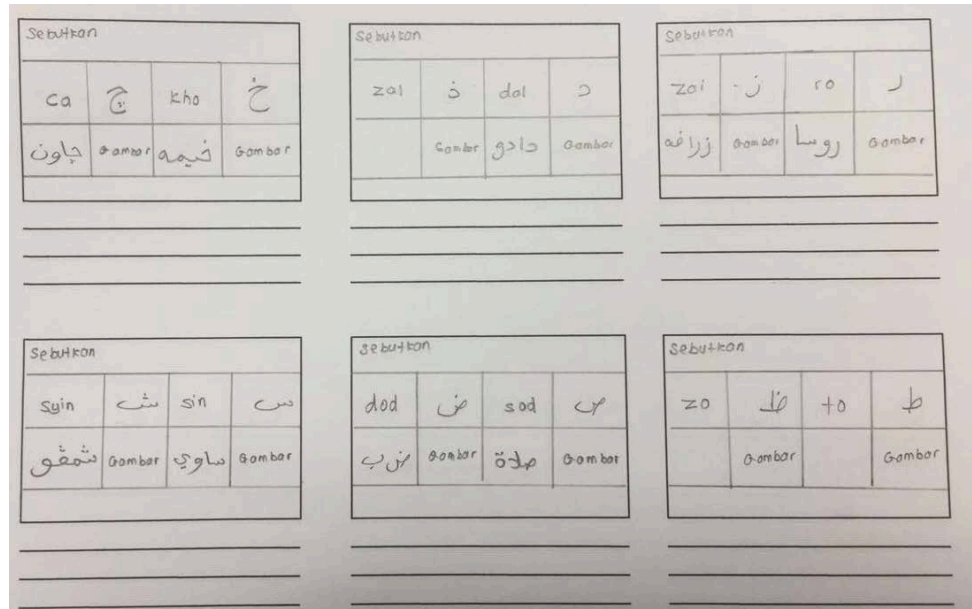 Sebutkan
ca چ kho خ
چاون Gambar خيمه Gambar
Sebutkan
zal ذ dal د
Gambar دادو Gambar
Sebutkan
zai ز ro ر
زرافه Gambar روسا Gambar
Sebutkan
syin ش sin س
شمڤو Gambar ساوي Gambar
Sebutkan
dod ض sod ص
ضب Gambar صلاة Gambar
Sebutkan
zo ظ to ط
Gambar Gambar